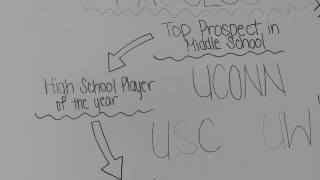 PROCESS
Top Prospect in
Middle School
High School Player
of the year
UCONN
USC
UW